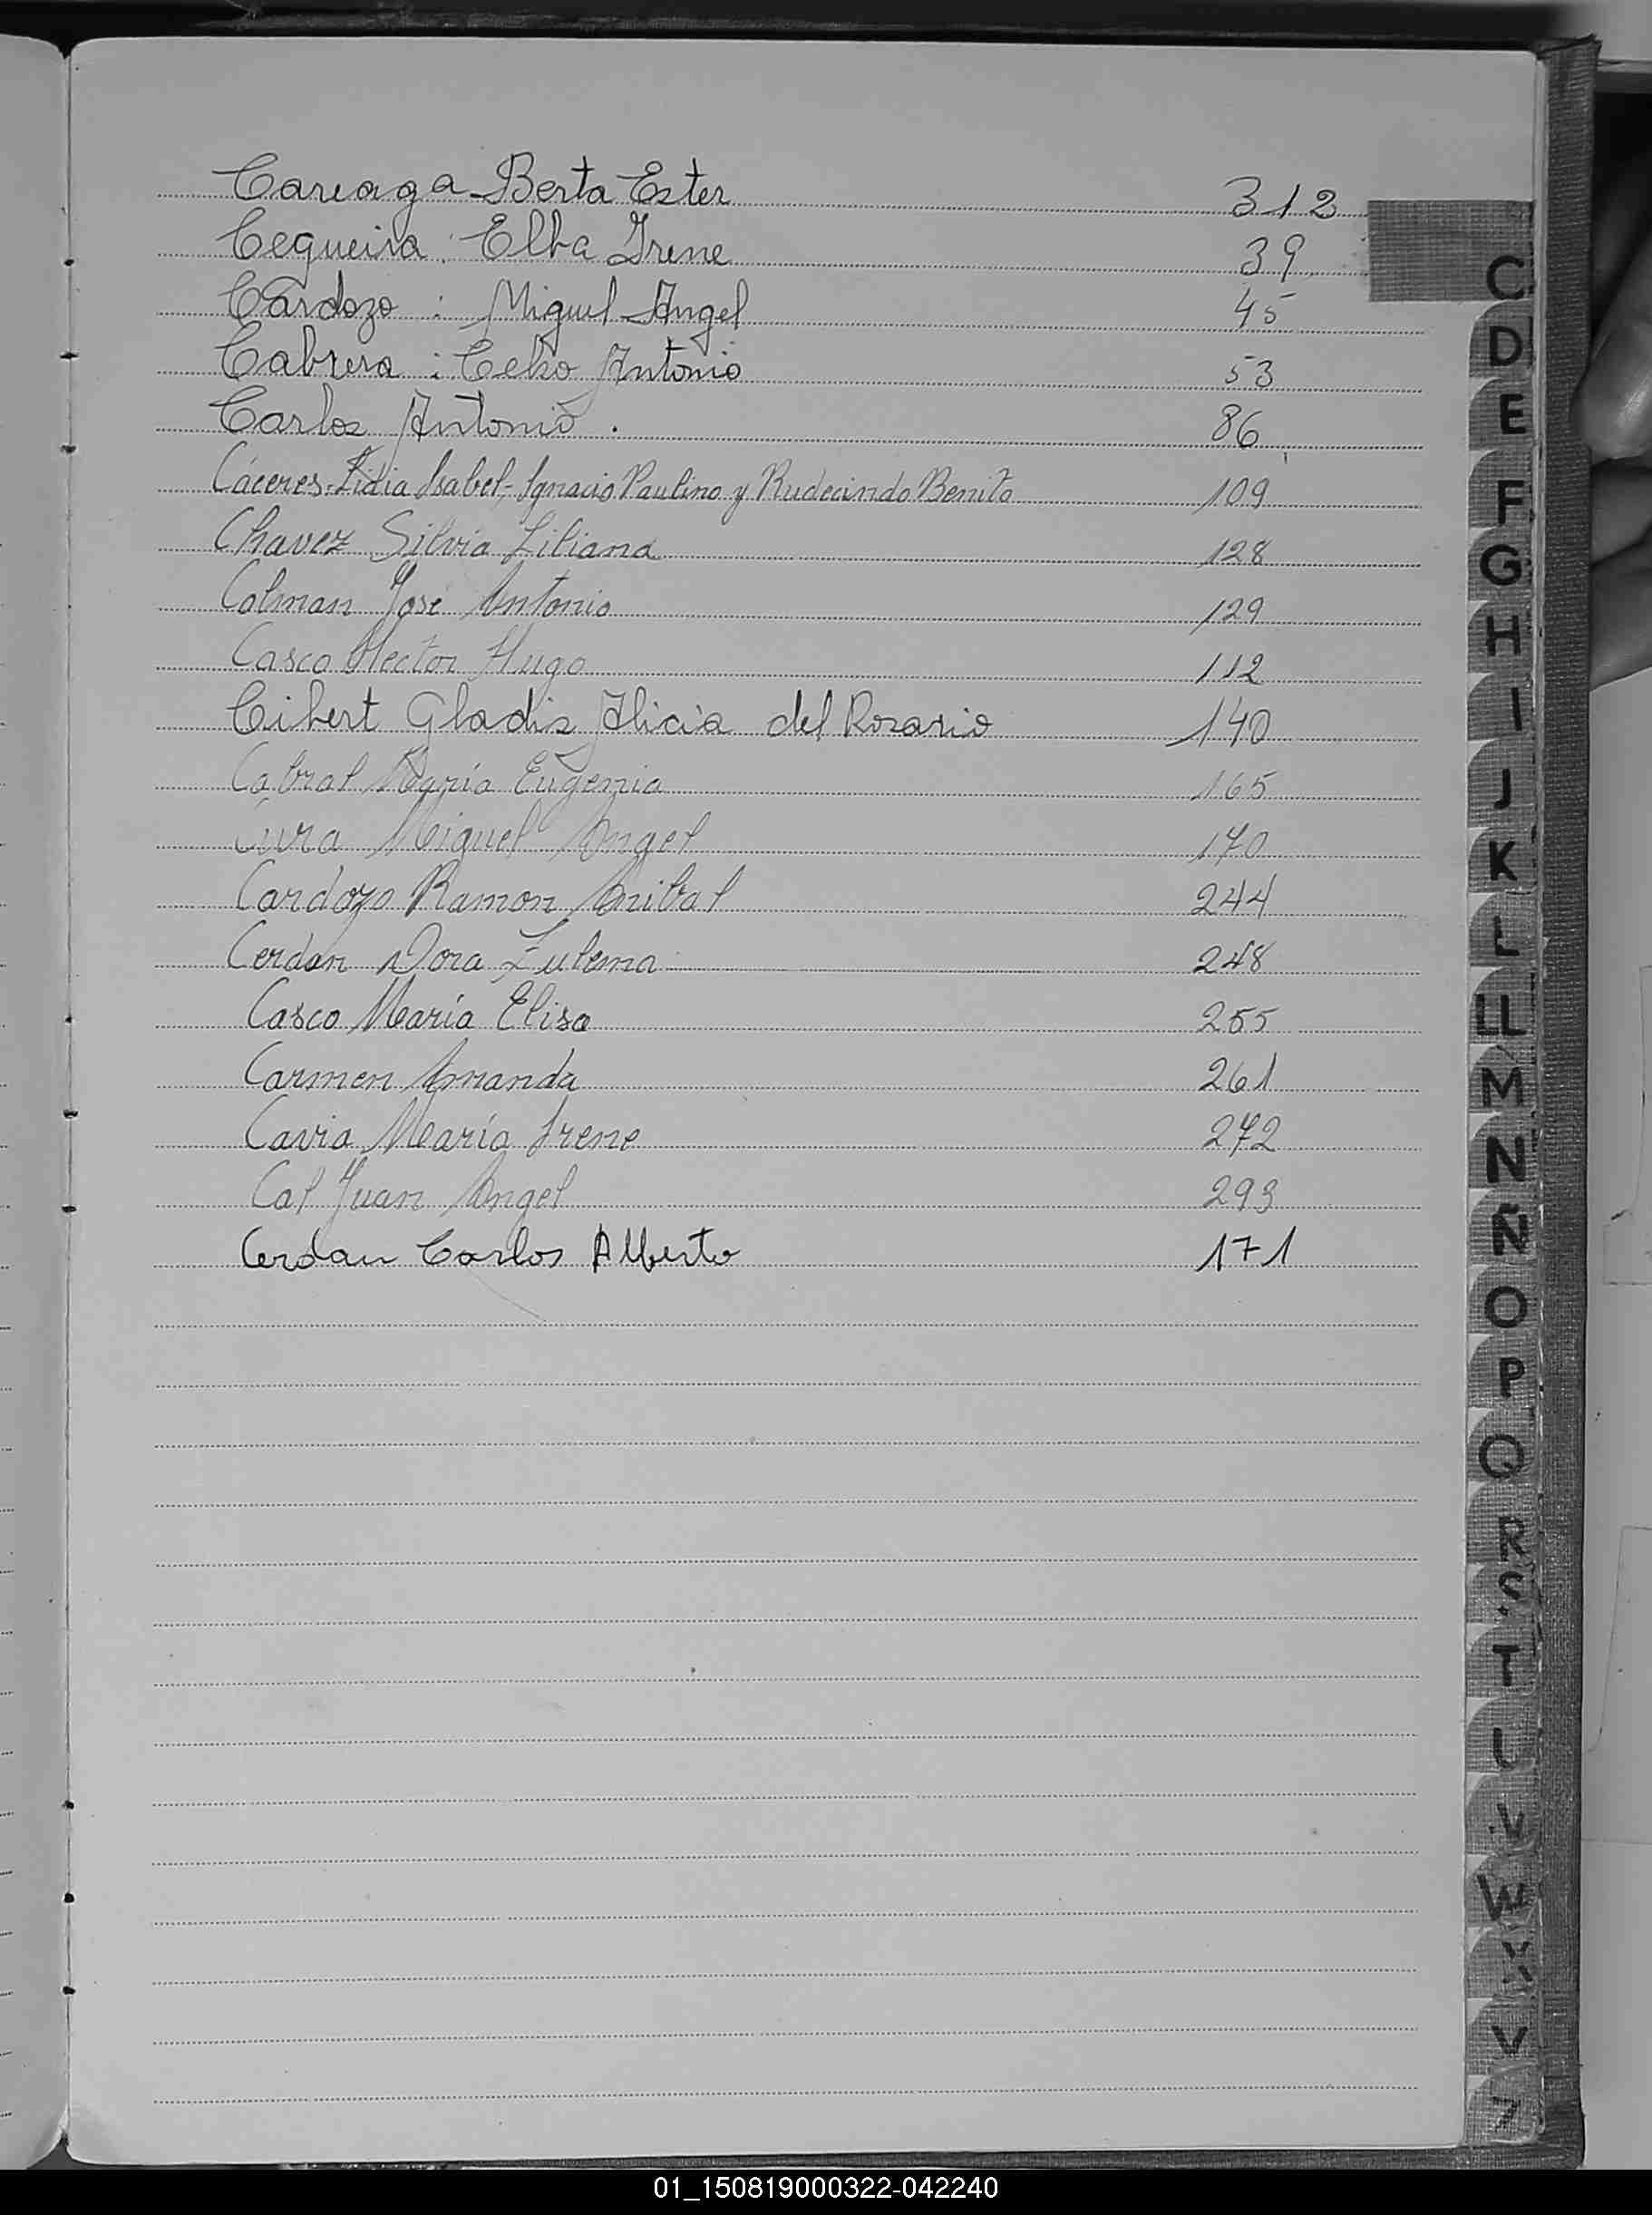 Careaga Berta Ester 312
Cequeira : Elba Irene 39
Cardozo : Miguel Angel 45
Cabrera : Celso Antonio 53
Carlos Antonio . 86
Cáceres-Lidia Isabel-Ignacio Paulino y Rudecindo Benito 109
Chavez Silvia Liliana 128
Colman José Antonio 129
Casco Hector Hugo 112
Cibert Gladis Alicia del Rosario 140
Cabral María Eugenia 165
Cura Miguel Angel 170
Cardozo Ramon Anibal 244
Cerdan Dora Zulema 248
Casco María Elisa 255
Carmen Amanda 261
Cavia María Irene 272
Cal Juan Angel 293
Cerdan Carlos Alberto 171
C
D
E
F
G
H
I
J
K
L
LL
M
N
Ñ
O
P
Q
R
S
T
V
W
01_150819000322-042240